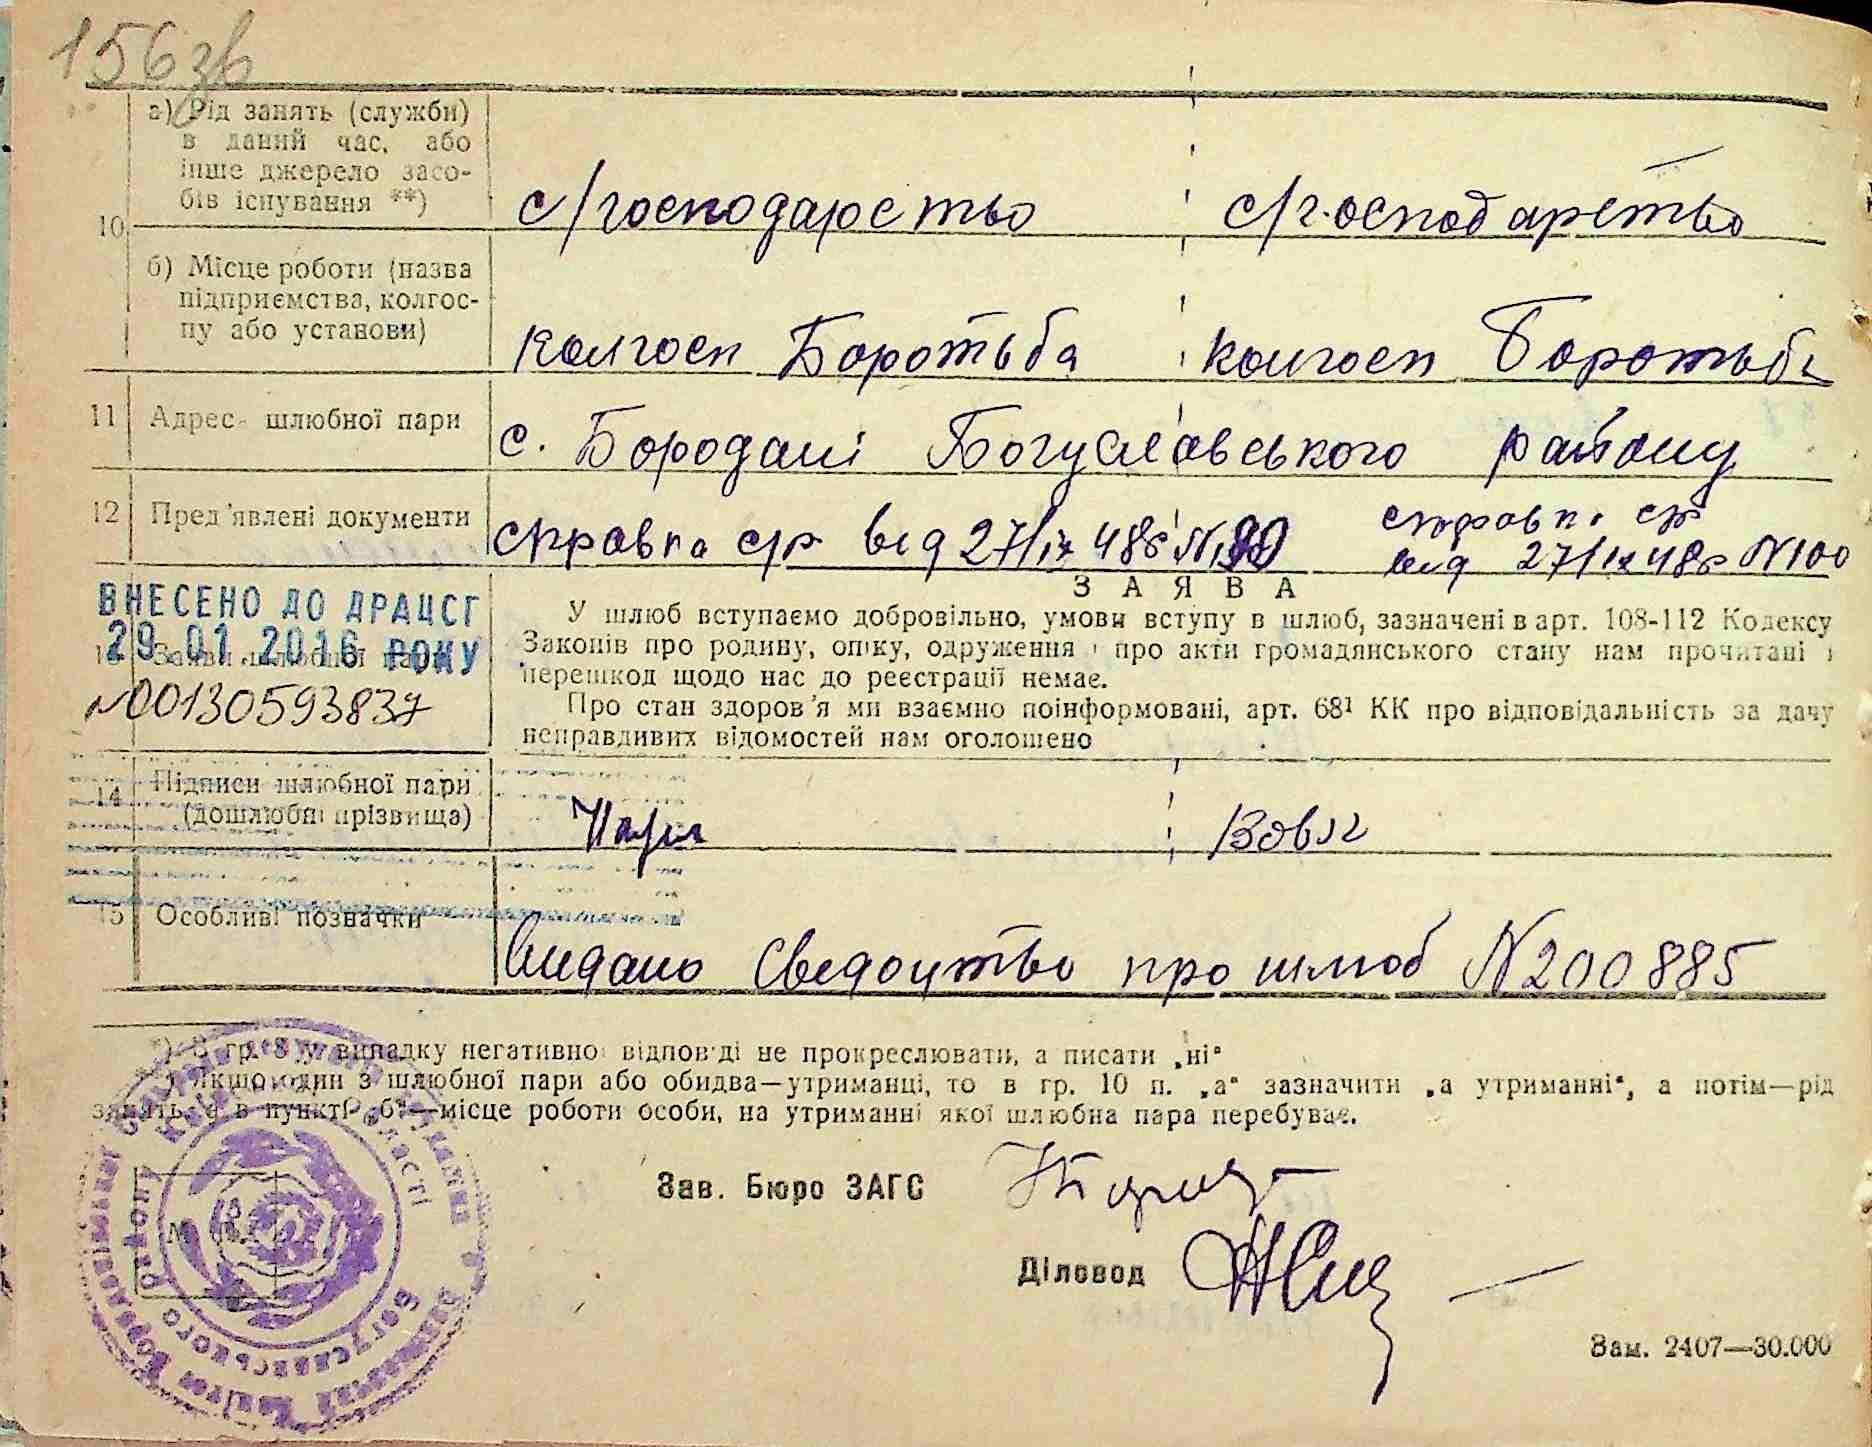 156зв
10
а) Рід занять (служби)
в даний час, або
інше джерело засо-
бів існування **)
с/господарство
с/господарство
б) Місце роботи (назва
підприємства, колгос-
пу або установи)
колгосп Боротьба
колгосп Боротьба
11
Адрес шлюбної пари
с. Бородані Богуславського району
12
Пред'явлені документи
справка с/р від 27/ІХ 48р N 90
справка с/р
від 27/ІХ 48р N 100
ВНЕСЕНО ДО ДРАЦСГ
29.01.2016 РОКУ
N00130593837
Заяви шлюбної пари
ЗАЯВА
У шлюб вступаємо добровільно, умови вступу в шлюб, зазначені в арт. 108-112 Кодексу
Законів про родину, опіку, одруження і про акти громадянського стану нам прочитані і
перешкод щодо нас до реєстрації немає.
Про стан здоров'я ми взаємно поінформовані, арт. 68¹ КК про відповідальність за дачу
неправдивих відомостей нам оголошено
14
Підписи шлюбної пари
(дошлюбні прізвища)
Вовк
15
Особливі позначки
Видано Сведоцтво про шлюб N 200885
*) В гр. 8 у випадку негативної відповіді не прокреслювати, а писати „ні"
**) Якщо один з шлюбної пари або обидва—утриманці, то в гр. 10 п. „а" зазначити „а утриманні", а потім—рід
занять, а в пункті „б"—місце роботи особи, на утриманні якої шлюбна пара перебуває.
Зав. Бюро ЗАГС
Діловод
Зам. 2407—30.000
Богуславського району
області